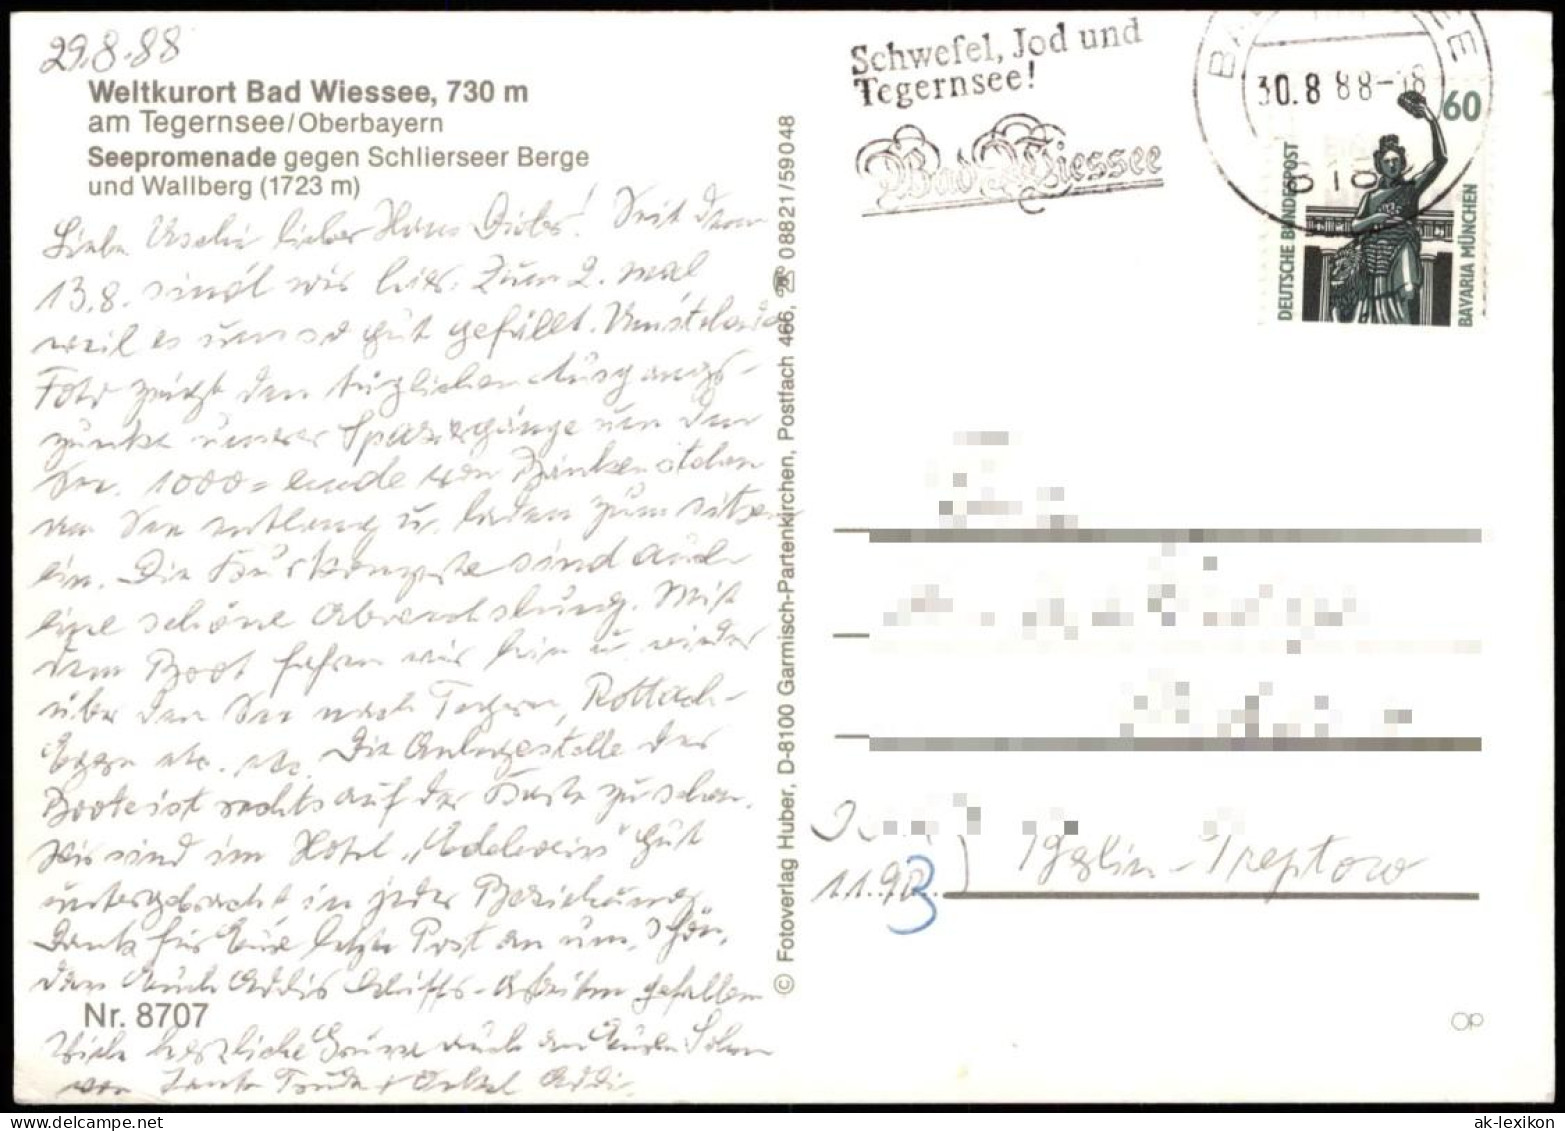 29.8.88
Weltkurort Bad Wiessee, 730 m
am Tegernsee/Oberbayern
Seepromenade gegen Schlierseer Berge
und Wallberg (1723 m)
Liebe Uschi, lieber Hans Dieter! Seit dem
13.8. sind wir hier. Zum 2. mal
weil es uns so gut gefällt. Umstehendes
Foto zeigt den täglichen Ausgangs-
punkt unserer Spaziergänge um den
See. 1000-ende von Bänken stehen
am See entlang u. laden zum sitzen
ein. Die Kurkonzerte sind auch
eine schöne Abwechslung. Mit
dem Boot fahren wir hin u. wieder
über den See nach Tegern, Rottach-
Egern etc. etc. Die Anlegestelle der
Boote ist rechts auf der Karte zu sehen.
Wir sind im Hotel „Edelweiss" gut
untergebracht in jeder Beziehung.
Dank für Eure letzte Post an uns. Schön,
das Euch Addis Schiffs-Arbeiten gefallen
Nr. 8707
Viele herzliche Grüsse auch an Euren Sohn
von Tante Trude + Onkel Addi.
© Fotoverlag Huber, D-8100 Garmisch-Partenkirchen, Postfach 466, ☏ 08821/59048
Schwefel, Jod und
Tegernsee!
Bad Wiessee
30.8.88-18
60
DEUTSCHE BUNDESPOST
BAVARIA MÜNCHEN
11.93
Berlin-Treptow
ak-lexikon